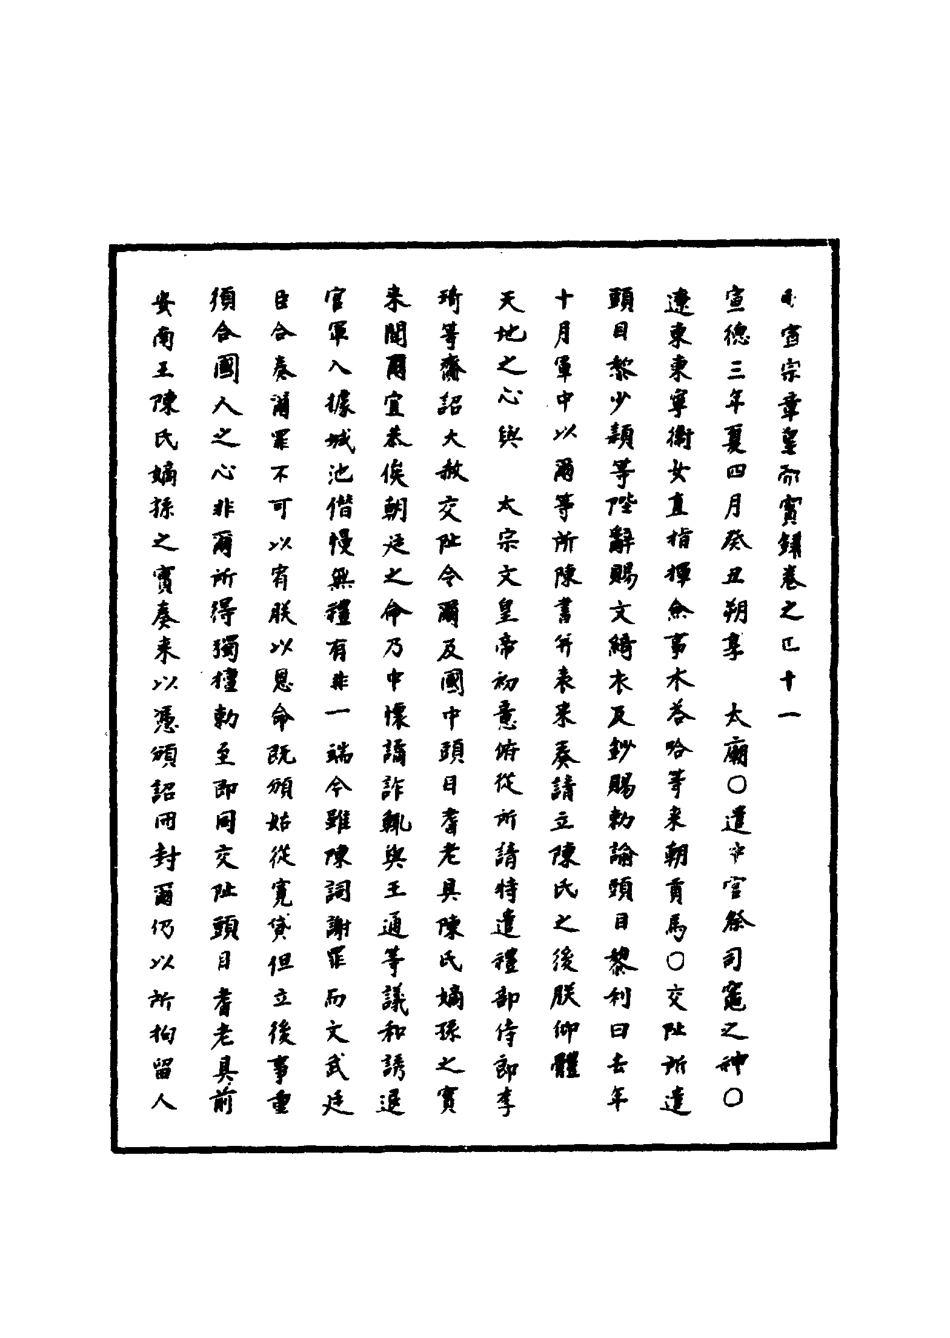 宣宗章皇帝實錄卷之四十一
宣德三年夏四月癸丑朔享　太廟○遣中官祭司竈之神○
遼東東寧衛女直指揮僉事木荅哈等來朝貢馬○交阯所遣
頭目黎少穎等陛辭賜文綺衣及鈔賜勑諭頭目黎利曰去年
十月軍中以爾等所陳書并表來奏請立陳氏之後朕仰體
天地之心與　太宗文皇帝初意俯從所請特遣禮部侍郎李
琦等齎詔大赦交阯令爾及國中頭目耆老具陳氏嫡孫之實
来聞爾宜恭俟朝廷之命乃中懷譎詐輒與王通等議和誘退
官軍入據城池僭慢無禮有非一端今雖陳詞謝罪而文武廷
臣合奏謂罪不可以宥朕以恩命既頒姑從寬貸但立後事重
須合國人之心非爾所得獨擅勑至即同交阯頭目耆老具前
安南王陳氏嫡孫之實奏来以憑頒詔冊封爾仍以所拘留人